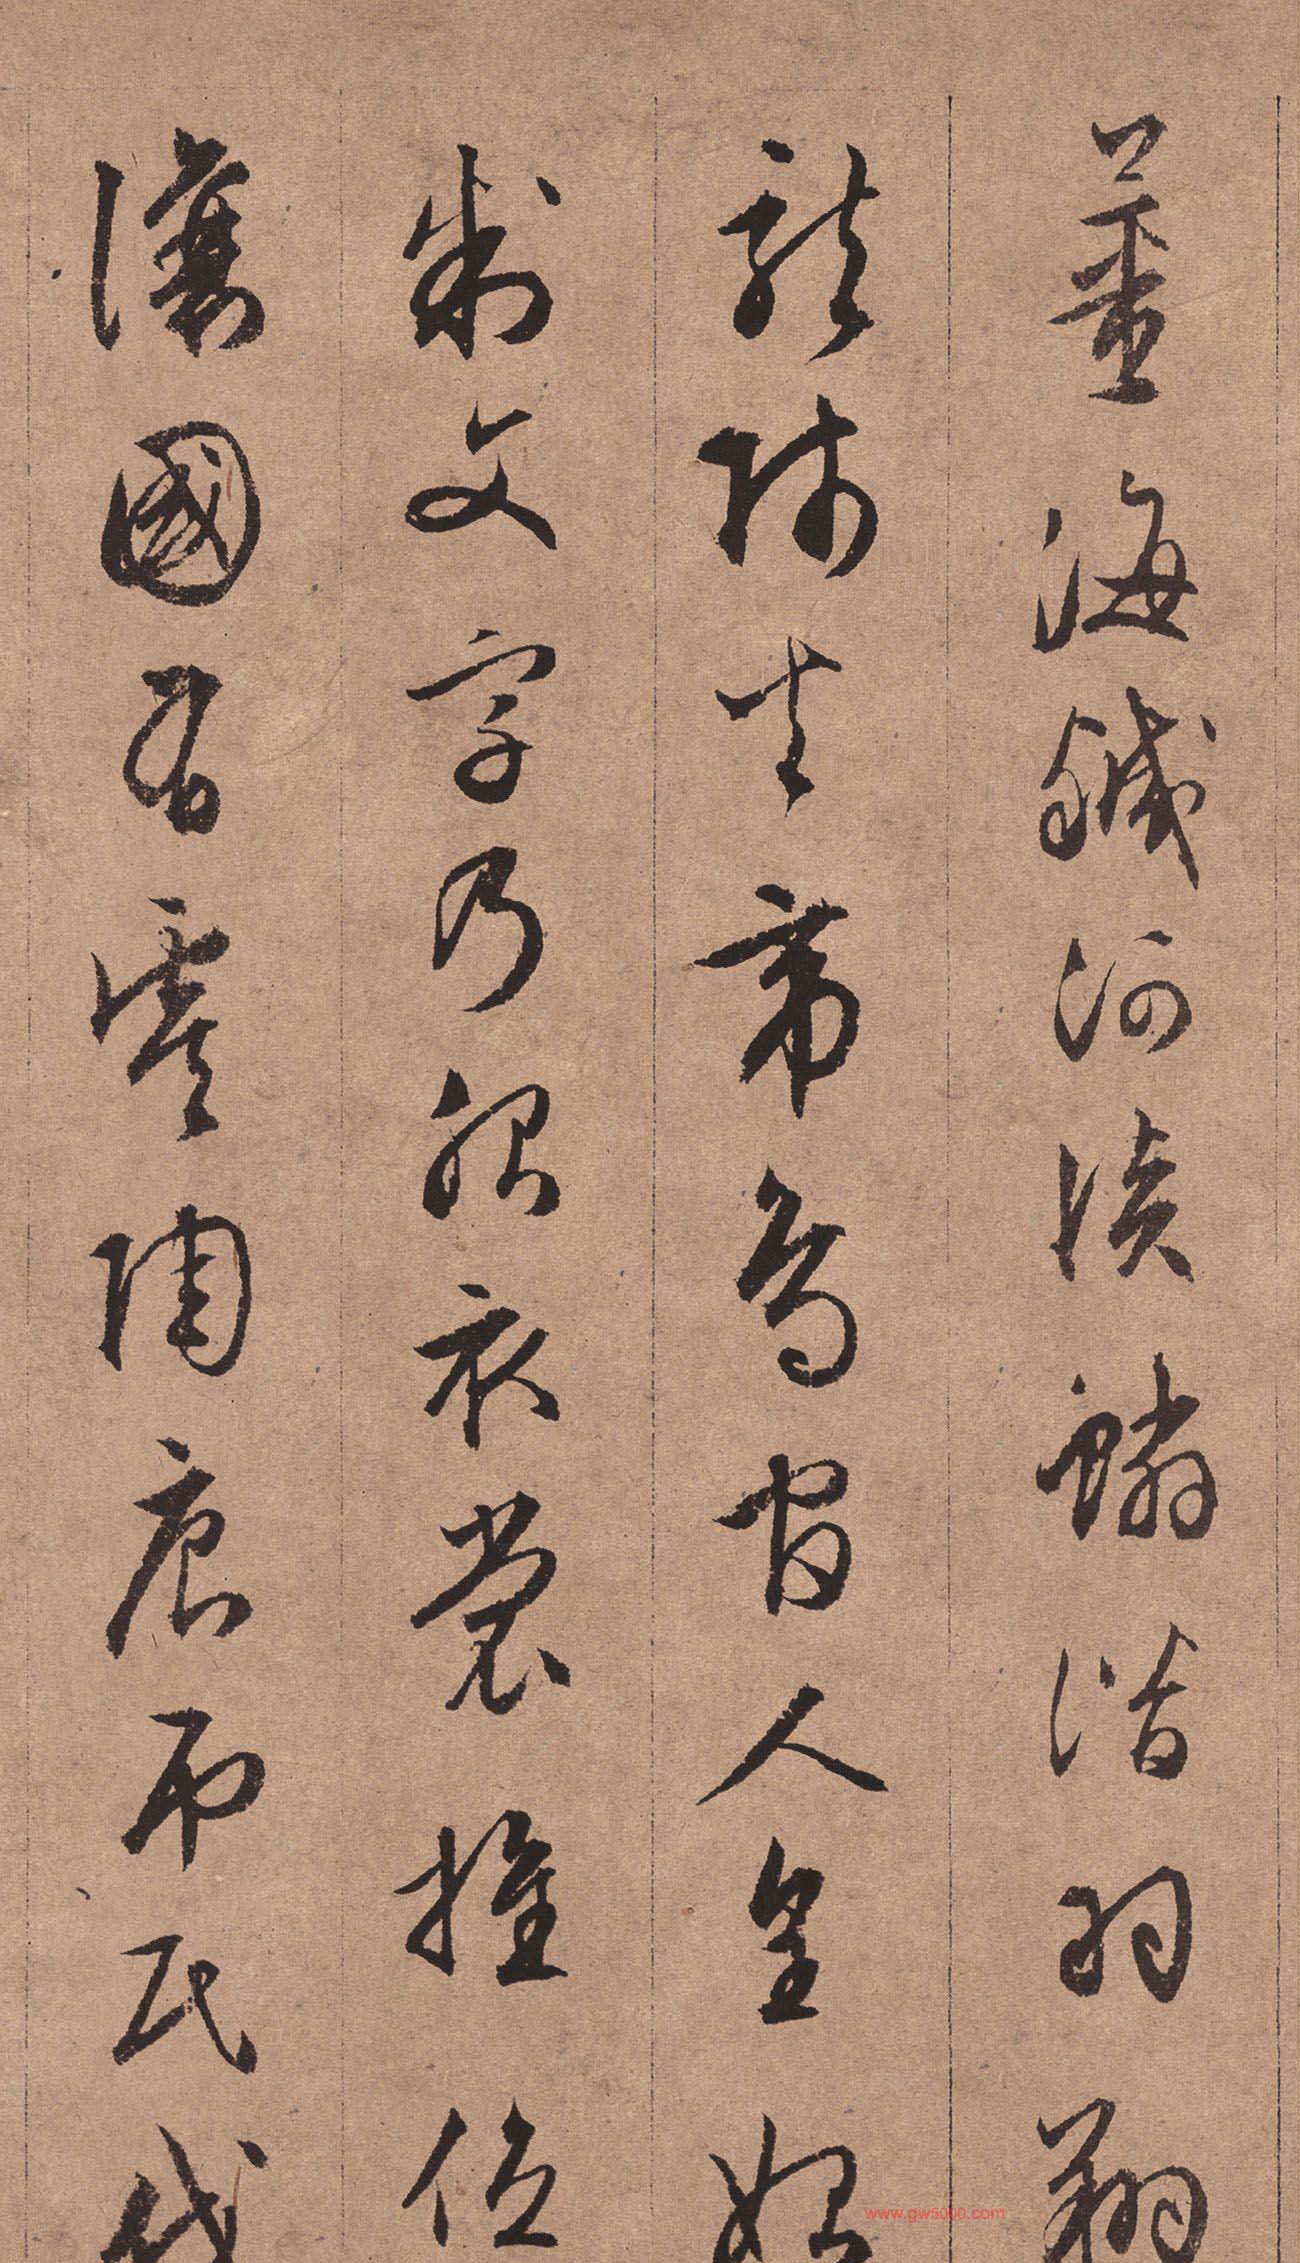 薑海鹹河淡鱗潛羽翔
龍師火帝鳥官人皇始
制文字乃服衣裳推位
讓國有虞陶唐弔民伐
www.gw5000.com